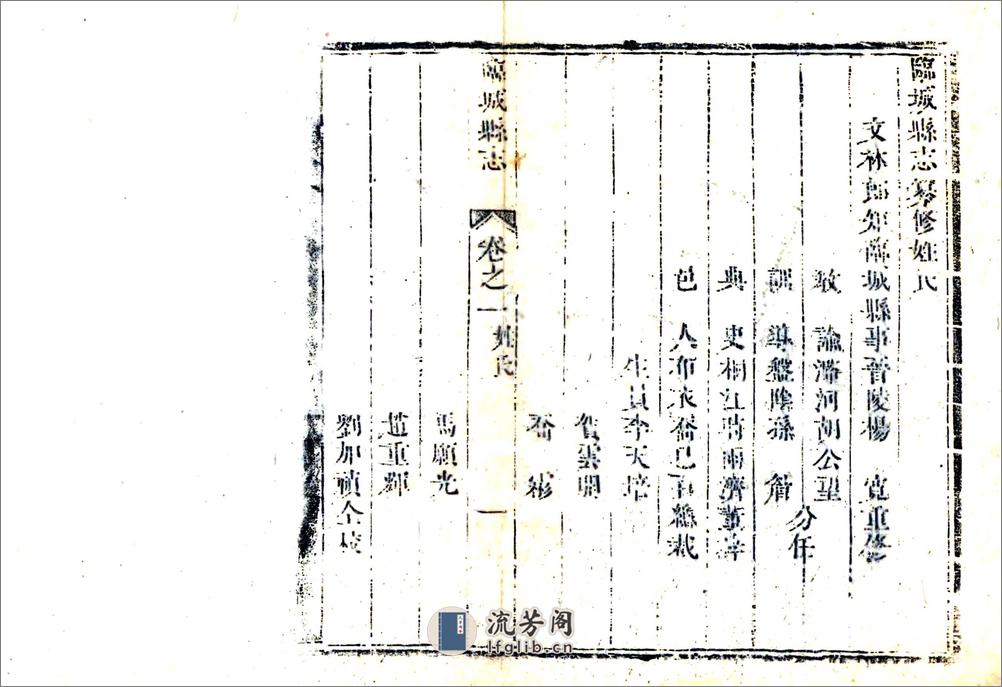 臨城縣志纂修姓氏
文林郎知臨城縣事晉陵楊 寬重修
教 諭潞河胡公望
訓 導盤陰孫 籌
分任
典 史桐江 雨濟董梓
邑 人布衣喬已百總裁
生員李天培
賀雲開
喬 彬
臨城縣志 卷之一 姓氏 一
馬願光
趙重輝
劉加禎仝校
流芳阁
lfglib.cn